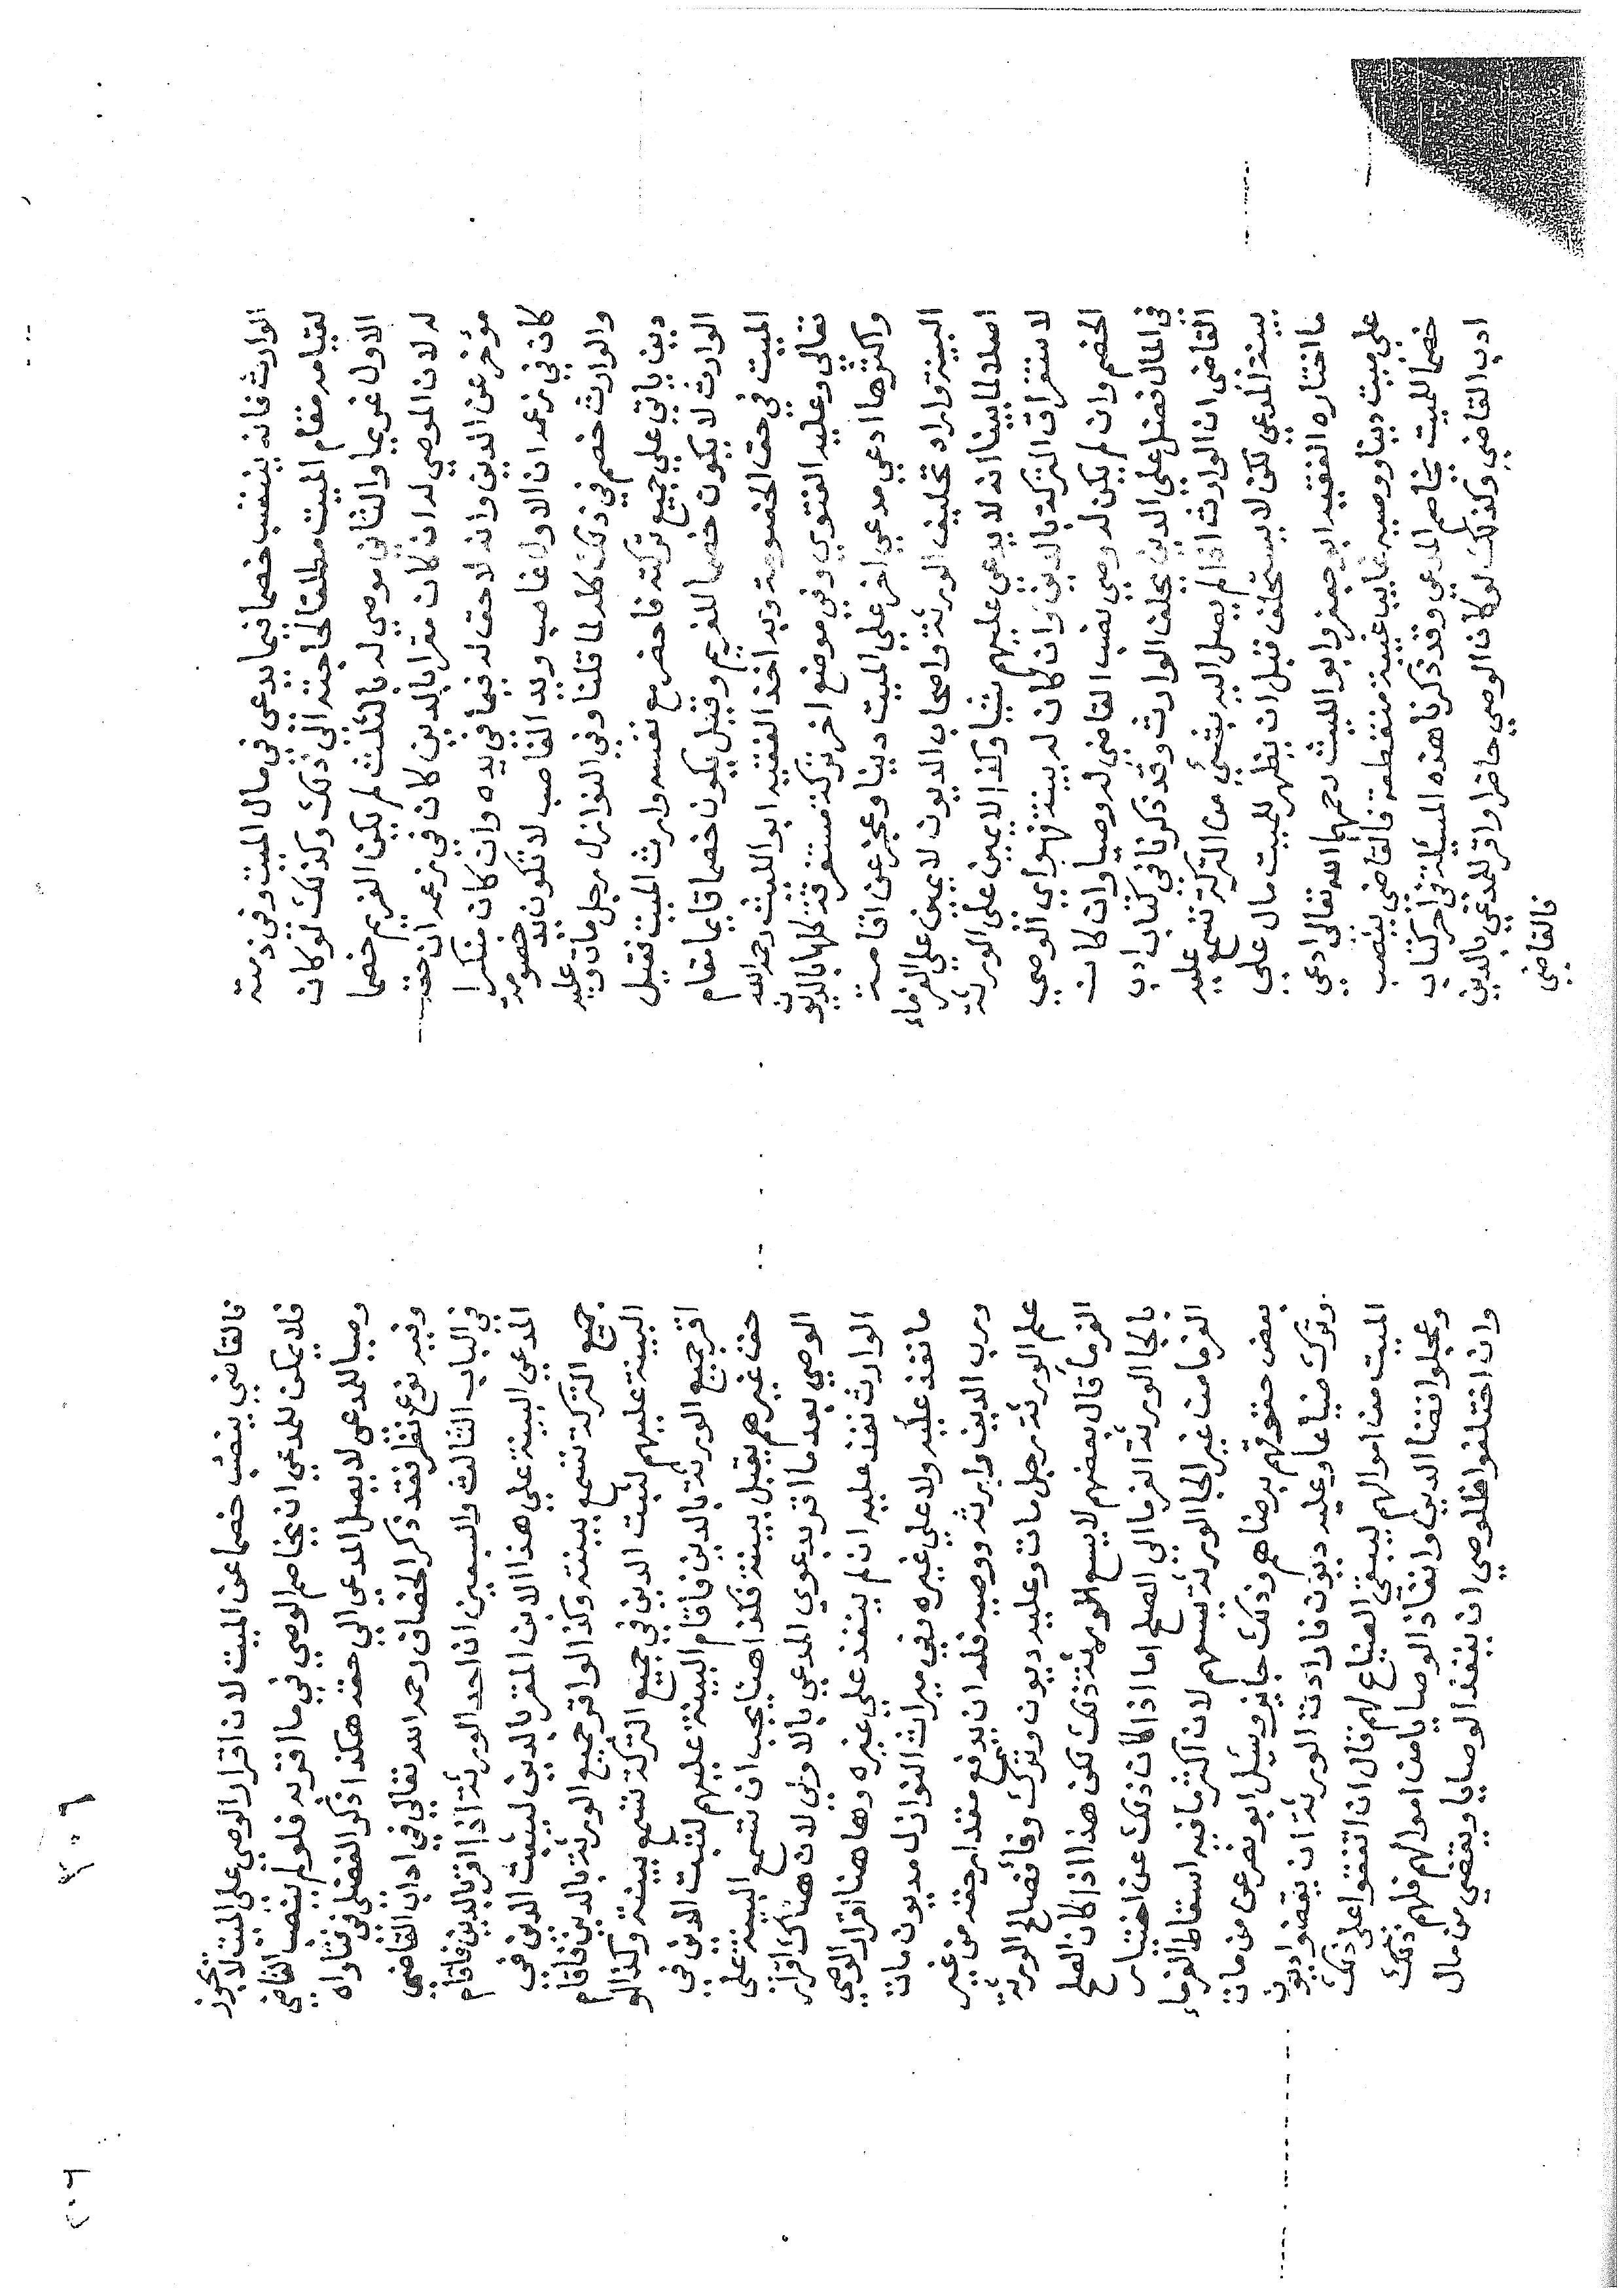 الوارث فانه ينتصب خصما فيما يدعى في مال الميت وفي ذمته
لقيامه مقام الميت مطلقا لحاجته الى ذلك وكذلك لو كان
الاول غريما والثاني موصى له بالثلث لم يكن الغريم خصما
له لان الموصي له ان كان مقرا بالدين كان في زعمه ان حقه
مؤخر عن الدين وانه لا حق له فيما في يده وان كان منكرا
كان في زعمه ان الاول غاصب ويد الغاصب لا تكون يد خصومة
والوارث خصم في ذلك كله لما قلنا وفي النوازل رجل مات وعليه
دين ياتي علي جميع تركته فاحضر مع نفسه وارث الميت فقيل
الوارث لا يكون خصما للغريم وقيل يكون خصما قايما مقام
الميت في حق الخصومة وبه اخذ الفقيه ابو الليث رحمه الله
تعالى وعليه الفتوي وفي موضع اخر تركة مستغرقة كلها بالديون
واكثرها ادعي مدعي اخر علي الميت دينا وعجز عن اقامة
البينة واراد تحليف الورثة واصحاب الديون لا يمين علي الغرماء
اصلا لما بينا انه لا يدعي عليهم شيا وكذا لا يمين على الورثة
لاستغراق التركة بالدين وان كان له بينة فهو اي الوصي
الخصم وان لم يكن له وصي نصب القاضي له وصيا وان كان
في المال فضل علي الدين يحلف الوارث وقد ذكرنا في كتاب ادب
القاضي ان الوارث اذا لم يصل اليه شئ من التركة تسمع عليه
بينة المدعي لكن لا يستحلف قبل ان يظهر للميت مال على
ما اختاره الفقيه ابو جعفر وابو الليث رحمهما الله تعالى ادعى
علي ميت دينا ووصيه غايب غيبة منقطعة فالقاضي ينصب
خصما للميت يخاصم المدعي وقد ذكرنا هذه المسئلة في اخر كتاب
ادب القاضي وكذلك لو كان الوصي حاضرا واقر للمدعي بالدين
فالقاضي
فالقاضي ينصب خصما عن الميت لان اقرار الوصي على الميت لا يجوز
فلا يمكن للمدعي ان يخاصم الوصي في ما اقر به فلو لم ينصب القاضي
وصيا للمدعى لا يصل المدعي الي حقه هكذا ذكر الفضلي في فتاواه
وفيه نوع نظر فقد ذكر الخصاف رحمه الله تعالي في اداب القاضي
في الباب الثالث والسبعين ان احد الورثة اذا اقر بالدين فاقام
المدعي البينة علي هذا الابن المقر بالدين ليثبت الدين في
جميع التركة تسمع بينته وكذا لو اقر جميع الورثة بالدين فاقام
البينة عليهم لتثبت الدين في جميع التركة تسمع بينته وكذا لو
اقر جميع الورثة بالدين فاقام البينة عليهم لتثبت الدين في
حق غيرهم يقبل بينته فكذا هنا يجب ان تسمع البينة على
الوصي بعد ما اقر بدعوي المدعي بالاولى لان هناك اقرار
الوارث نفذ عليه ان لم ينفذ علي غيره وهاهنا اقرار الوصي
ما نفذ عليه ولا علي غيره بقي ميراث النوازل مديون مات
ورب الدين وارثه ووصيه فله ان يرفع مقدار حقه من غير
علم الورثة رجل مات وعليه ديون وترك وفا فصالح الورثة
الغرما قال بعضهم لا يسع الورثة ذلك لكن هذا اذا كان الصلح
بالجا الورثة الغرما الي الصلح اما اذا كان ذلك عن اختيار
الغرما من غير الجا الورثة يسعهم لان اكثر ما فيه اسقاط الغرماء
بعض حقوقهم برضاهم وذلك جايز وسيل ابو نصر عن من مات
وترك ضياعا وعليه ديون فارادت الورثة ان يقضوا ديون
الميت من اموالهم ليبقي الضياع لهم قال ان اتفقوا على ذلك
وعجلوا قضا الدين وانفاذ الوصايا من اموالهم فلهم ذلك
وان اختلفوا فللوصي ان ينفذ الوصايا ويقضي من مال
٢٠٦